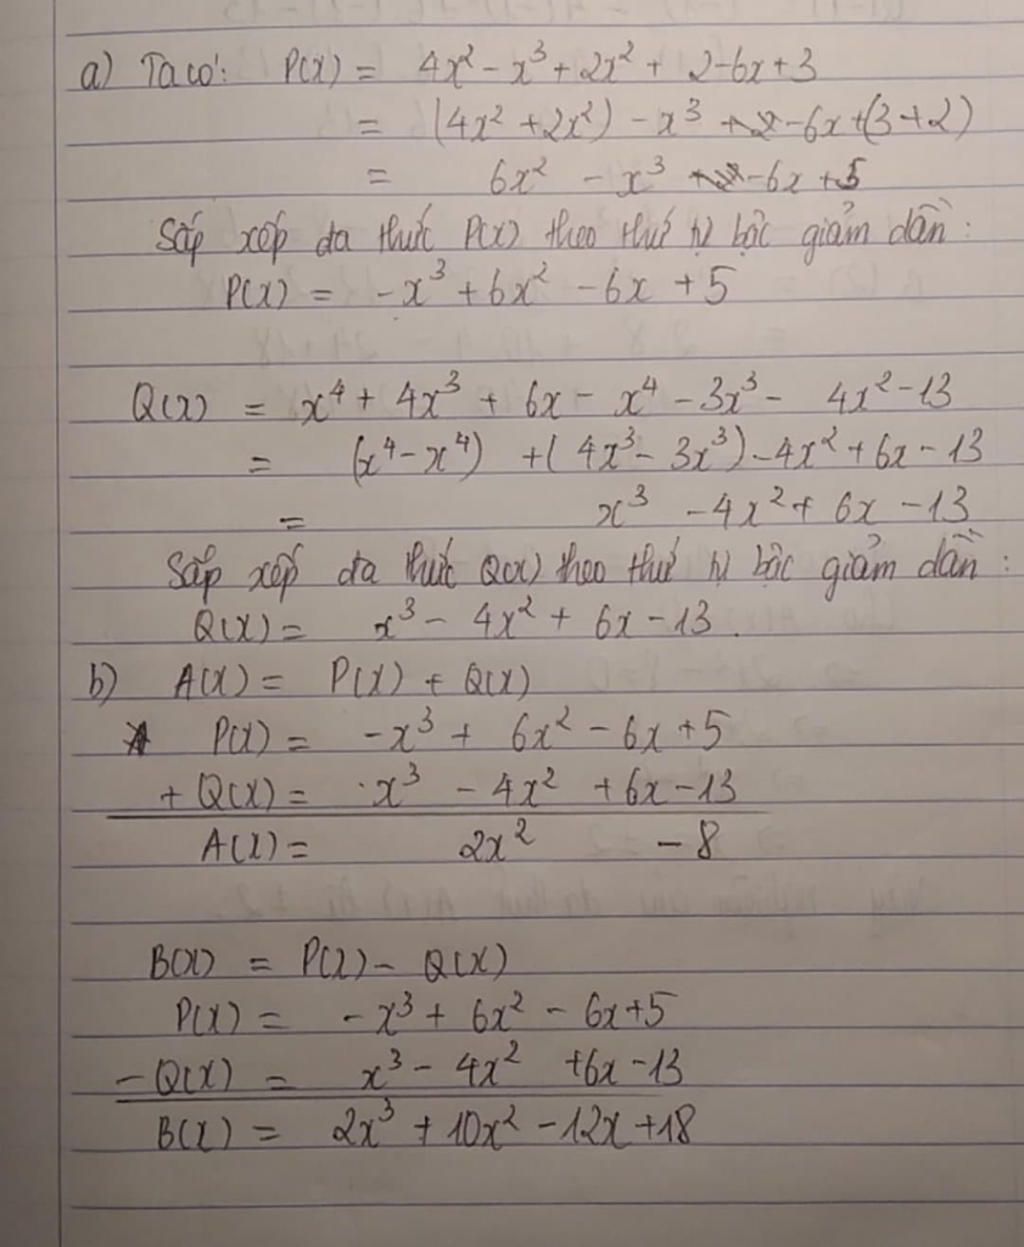 a) Ta có: P(x) = 4x² - x³ + 2x² + 2 - 6x + 3
= (4x² + 2x²) - x³ - 6x + (3 + 2)
= 6x² - x³ - 6x + 5
Sắp xếp đa thức P(x) theo thứ tự bậc giảm dần:
P(x) = -x³ + 6x² - 6x + 5
Q(x) = x⁴ + 4x³ + 6x - x⁴ - 3x³ - 4x² - 13
= (x⁴ - x⁴) + (4x³ - 3x³) - 4x² + 6x - 13
= x³ - 4x² + 6x - 13
Sắp xếp đa thức Q(x) theo thứ tự bậc giảm dần:
Q(x) = x³ - 4x² + 6x - 13.
b) A(x) = P(x) + Q(x)
P(x) = -x³ + 6x² - 6x + 5
+ Q(x) = x³ - 4x² + 6x - 13
A(x) = 2x² - 8
B(x) = P(x) - Q(x)
P(x) = -x³ + 6x² - 6x + 5
- Q(x) = x³ - 4x² + 6x - 13
B(x) = 2x³ + 10x² - 12x + 18